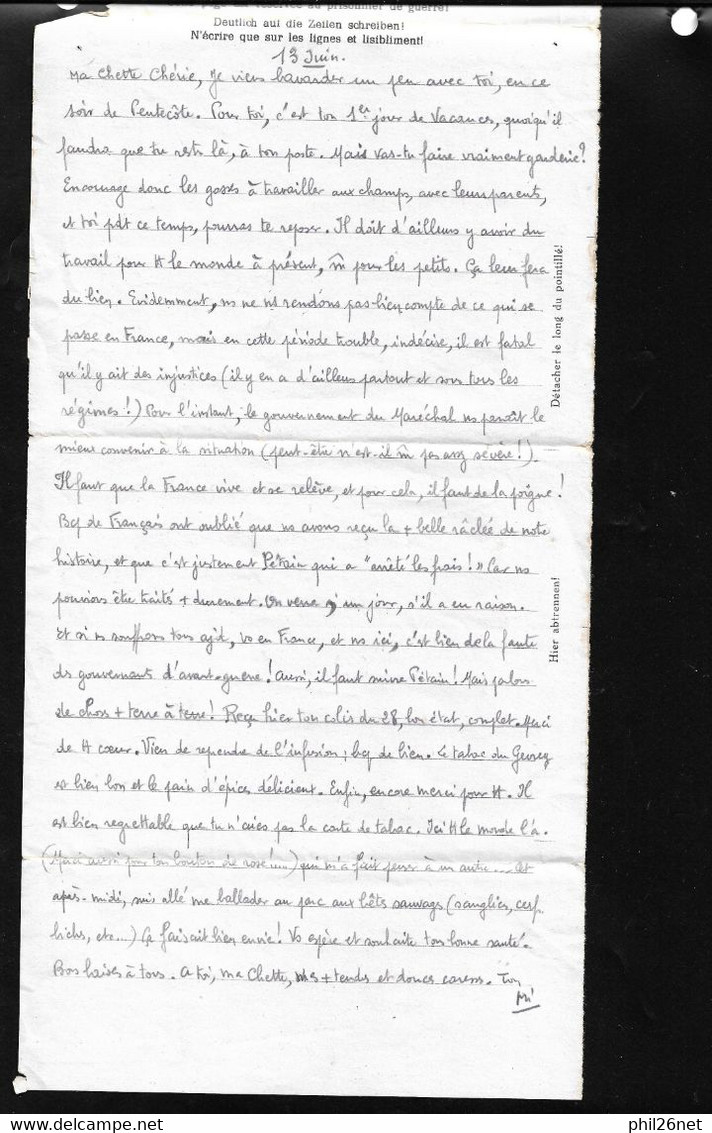 réservée au prisonnier de guerre!
Deutlich auf die Zeilen schreiben!
N'écrire que sur les lignes et lisibliment!
13 Juin.
Ma Chette Chérie, Je viens bavarder un peu avec toi, en ce
soir de Pentecôte. Pour toi, c'est ton 1er jour de Vacances, quoiqu'il
faudra que tu restes là, à ton poste. Mais vas-tu faire vraiment garderie?
Encourage donc les gosses à travailler aux champs, avec leurs parents,
et toi pdt ce temps, pourras te reposer. Il doit d'ailleurs y avoir du
travail pour tt le monde à présent, m̂ pour les petits. Ça leur fera
du bien. Evidemment, ns ne ns rendons pas bien compte de ce qui se
passe en France, mais en cette période trouble, indécise, il est fatal
qu'il y ait des injustices (il y en a d'ailleurs partout et sous tous les
régimes!) Pour l'instant, le gouvernement du Maréchal ns paraît le
mieux convenir à la situation (peut-être n'est-il m̂ pas assez sévère!).
Il faut que la France vive et se relève, et pour cela, il faut de la poigne!
Bcp de Français ont oublié que ns avons reçu la + belle râclée de notre
histoire, et que c'est justement Pétain qui a "arrêté les frais!" Car ns
pouvions être traités + durement. On verra, un jour, s'il a eu raison.
Et si ns souffrons tous ajd, vs en France, et ns ici, c'est bien de la faute
ds gouvernants d'avant-guerre! Aussi, il faut suivre Pétain! Mais parlons
de choses + terre à terre! Reçu hier ton colis du 28, bon état, complet. Merci
de tt cœur. Viens de reprendre de l'infusion; bcp de bien. Le tabac du
est bien bon et le pain d'épices délicieux. Enfin, encore merci pour tt. Il
est bien regrettable que tu n'aies pas la carte de tabac. Ici tt le monde l'a.
(Merci aussi pour ton bouton de rose!....) qui m'a fait penser à un autre.... Cet
après-midi, suis allé me ballader au parc aux bêtes sauvages (sangliers, cerfs,
biches, etc...) Ça faisait bien envie! Vs espère et souhaite tous bonne santé.
Bons baisers à tous. A toi, ma Chette, mes + tendres et douces caresses. Ton
Détacher le long du pointillé!
Hier abtrennen!
phil26net